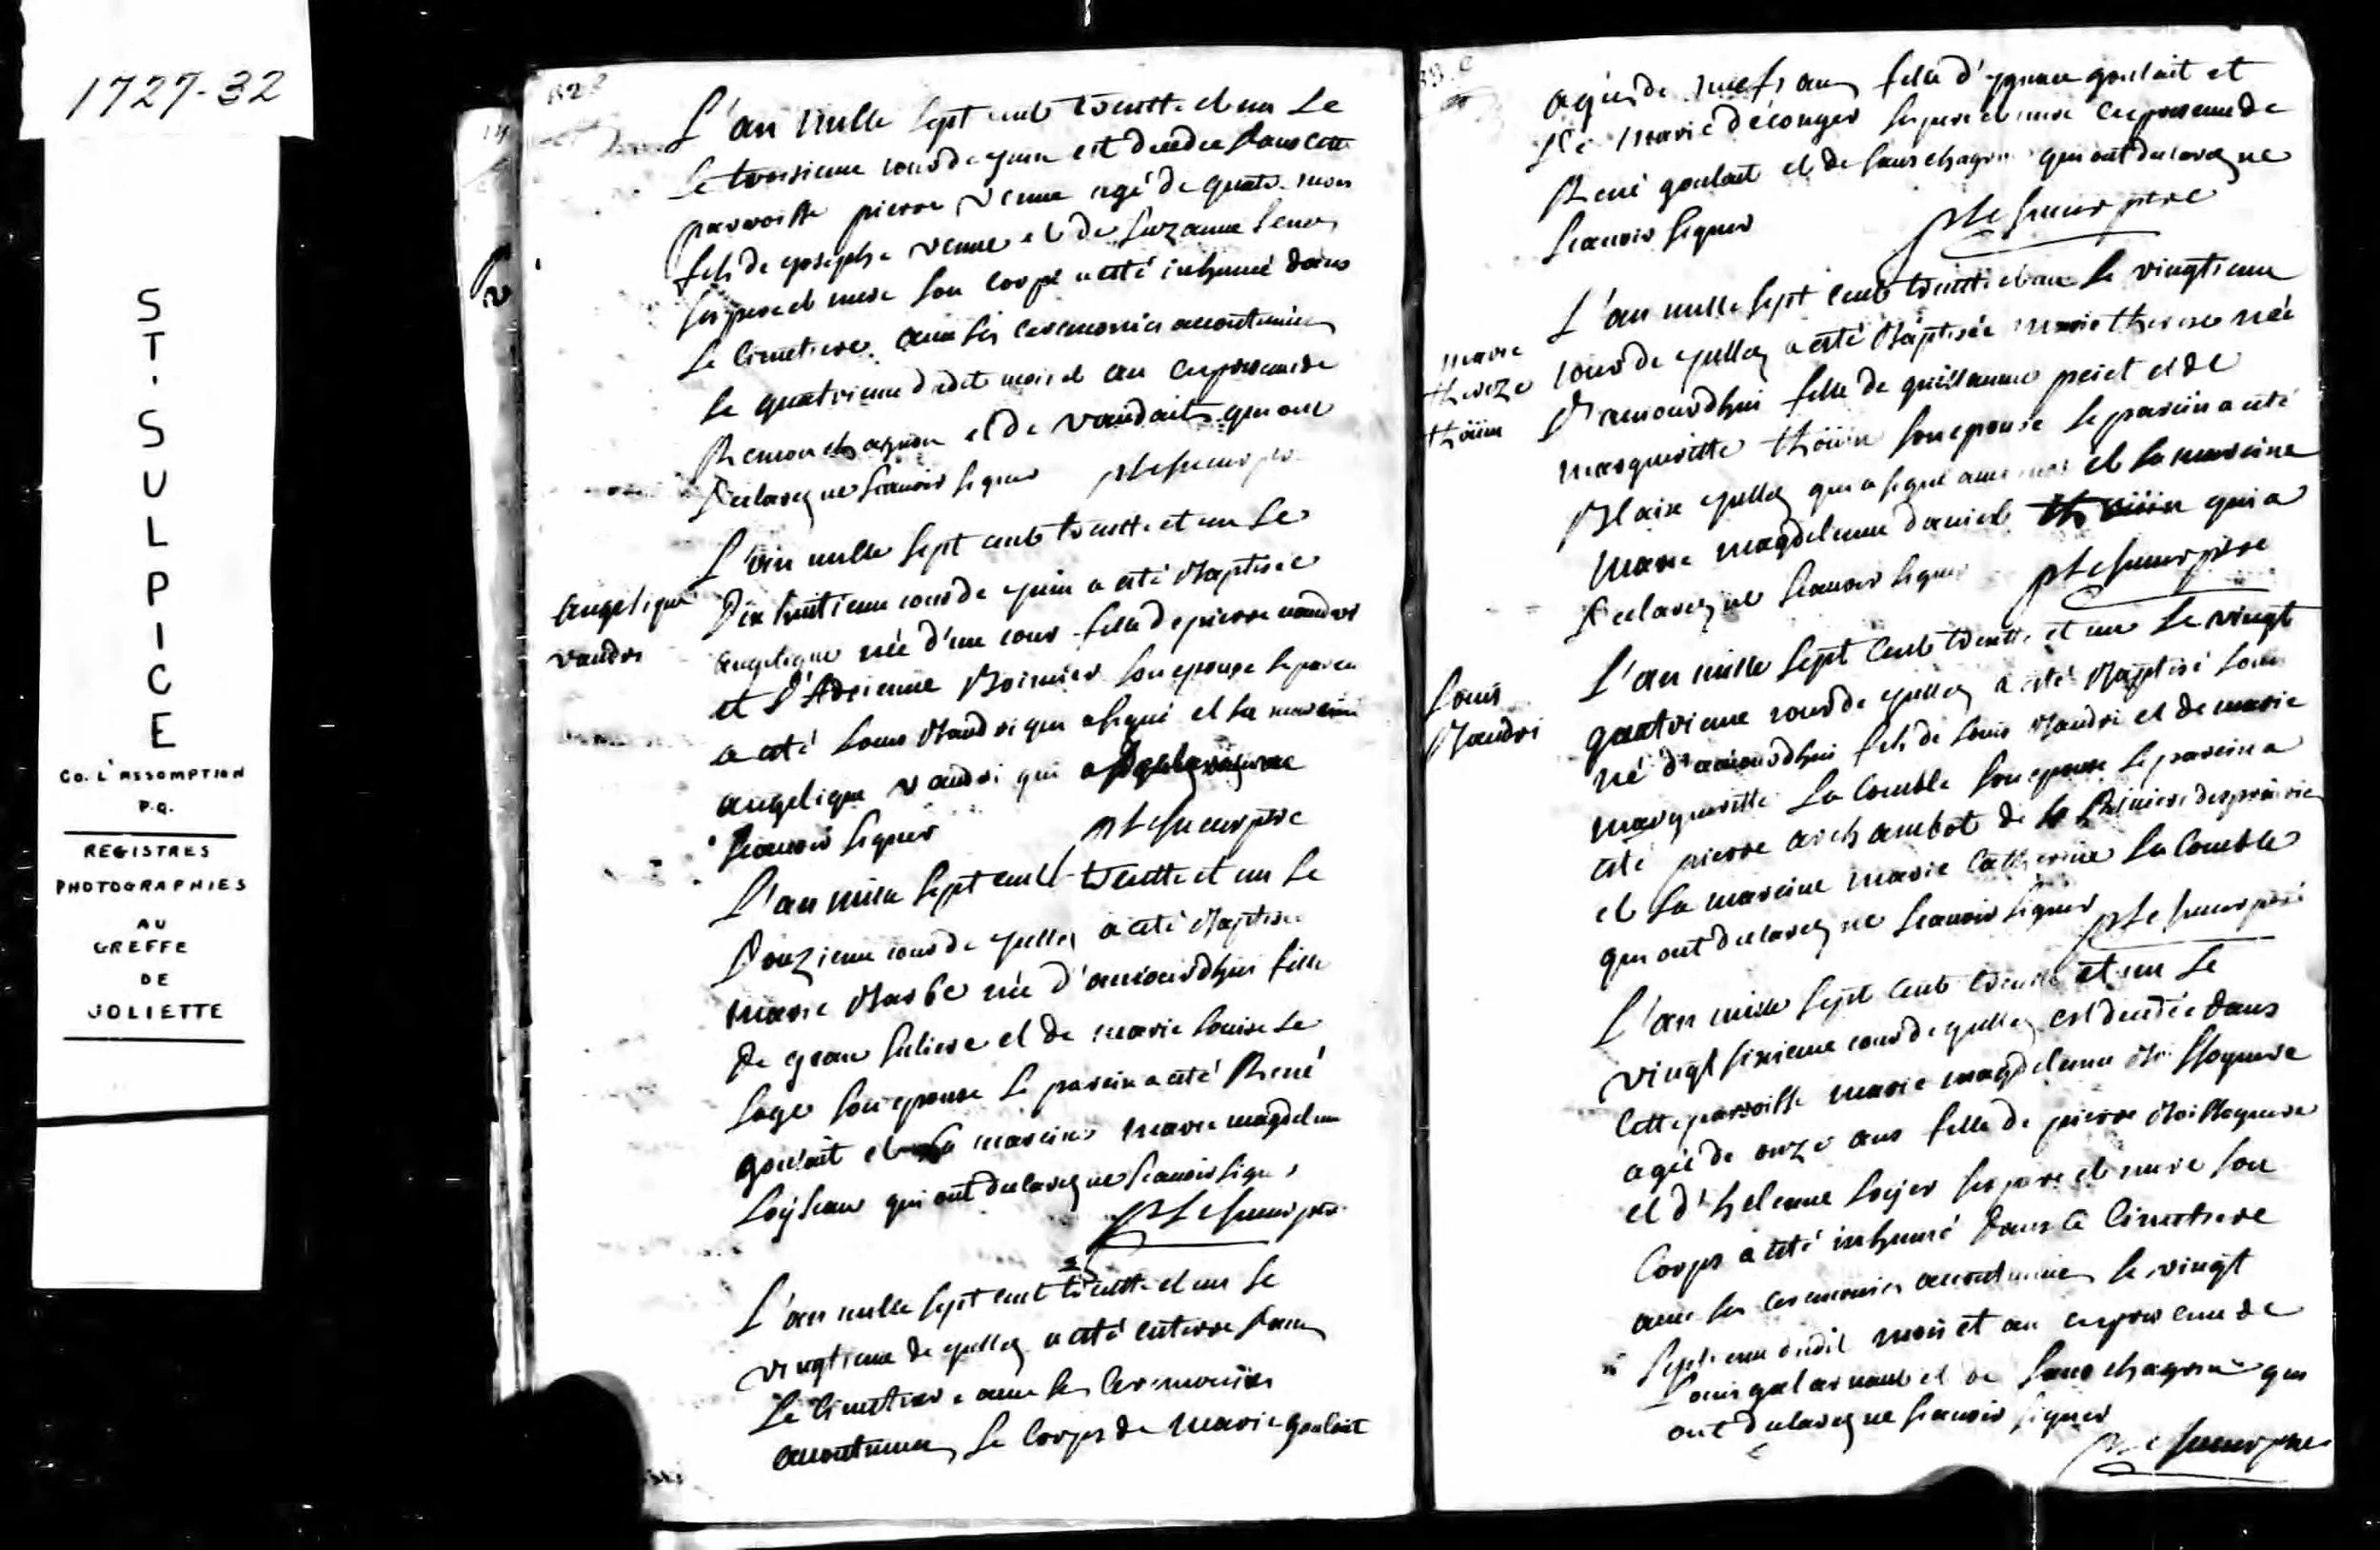 1727-32
ST. SULPICE
CO. L'ASSOMPTION
P.Q.
REGISTRES
PHOTOGRAPHIES
AU
GREFFE
DE
JOLIETTE
L'an mille sept cent trentte et un Le
le troisieme jour de juin est dans cette
parroisse pierre venne agé de quatre mois
fils de joseph venne et de suzanne
ses pere et mere son corps a esté inhumé dans
le cimetiere avec les ceremonies accoutumées
le quatrieme dudit mois et an en presence de
et de vaudait qui ont
declarez ne scauoir signer ptr
L'an mille sept cent trentte et un Le
angelique
vaudri
Dix huitieme jour de juin a esté Baptisée
angelique née d'un jour fille de pierre vaudri
et d'Adrienne Bornier son epouse le parein
a esté Louis Baudri qui a signé et la mareine
angelique vaudri qui a declarez ne
scauoir signer ptre
L'an mille sept cent trentte et un Le
Douzieme jour de juillez a esté Baptisée
marie Barbe née d'aujourdhui fille
de jean et de marie Louise Le
sage son epouse le parein a esté René
goulait et la mareine marie magdelene
Loyseau qui ont declarez ne scauoir signer
ptre
L'an mille sept cent trentte et un Le
vingtieme de juillez a esté enterré dans
le cimetiere avec les ceremonies
accoutumées le corps de marie goulait
agée de neuf ans fille d'ygnace goulait et
de marie deconger ses pere et mere en presence de
René goulait et de sanschagrin qui ont declarez ne
scauoir signer
ptre
L'an mille sept cent trentte et un Le vingtieme
marie
thereze
thöiin
jour de juillez a esté Baptisée marie therese née
d'aujourdhui fille de guillaume et de
margueritte thöiin son epouse le parein a esté
Blaise juillez qui a signé avec nous et la mareine
marie magdelenne daniel qui a
declarez ne scauoir signer ptre
L'an mille sept cent trentte et un Le vingt
Louis
Baudri
quatrieme jour de juillez a esté Baptisé Louis
né d'aujourdhui fils de Louis Baudri et de marie
margueritte La Comble son epouse le parein a
esté pierre archambot de la Riviere des prairies
et la mareine marie Catherine La Comble
qui ont declarez ne scauoir signer ptre
L'an mille sept cent trentte et un Le
vingt sixieme jour de juillez est dans
cette parroisse marie magdelenne
agée de onze ans fille de pierre
et d'helenne Loyer ses pere et mere son
corps a esté inhumé dans le Cimetiere
avec les ceremonies accoutumées le vingt
septieme dudit mois et an en presence de
Louis galarnaud et de sanschagrin qui
ont declarez ne scauoir signer
ptre